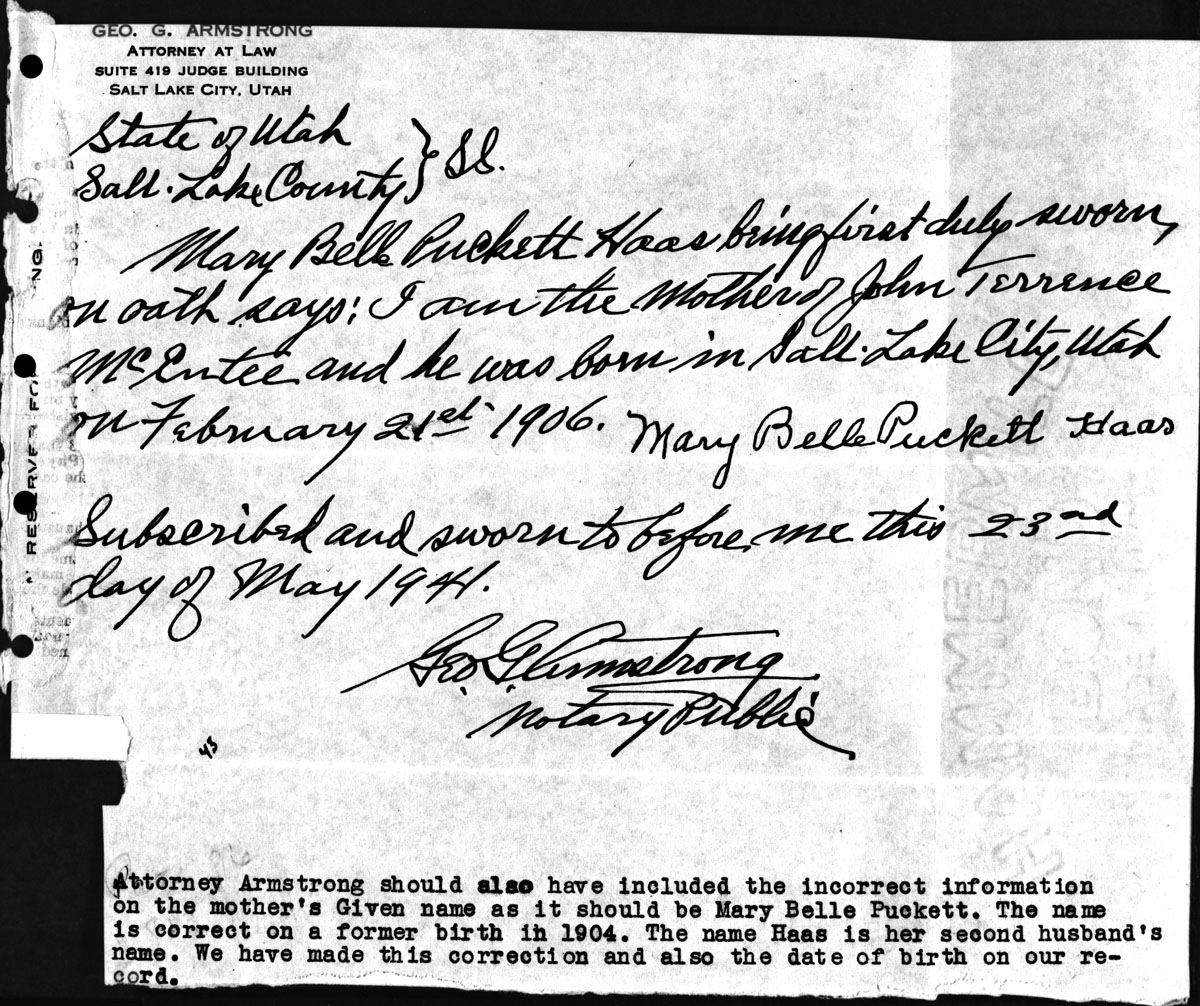 GEO. G. ARMSTRONG
ATTORNEY AT LAW
SUITE 419 JUDGE BUILDING
SALT LAKE CITY, UTAH
State of Utah
Salt Lake County } SS.
Mary Belle Puckett Haas being first duly sworn,
on oath says: I am the Mother of John Terrence
McEntee and he was born in Salt Lake City, Utah
on February 21st 1906. Mary Belle Puckett Haas
Subscribed and sworn to before me this 23rd
day of May 1941.
Geo. G. Armstrong
Notary Public
43
RESERVED FO
NG
Attorney Armstrong should also have included the incorrect information
on the mother's Given name as it should be Mary Belle Puckett. The name
is correct on a former birth in 1904. The name Haas is her second husband's
name. We have made this correction and also the date of birth on our re-
cord.